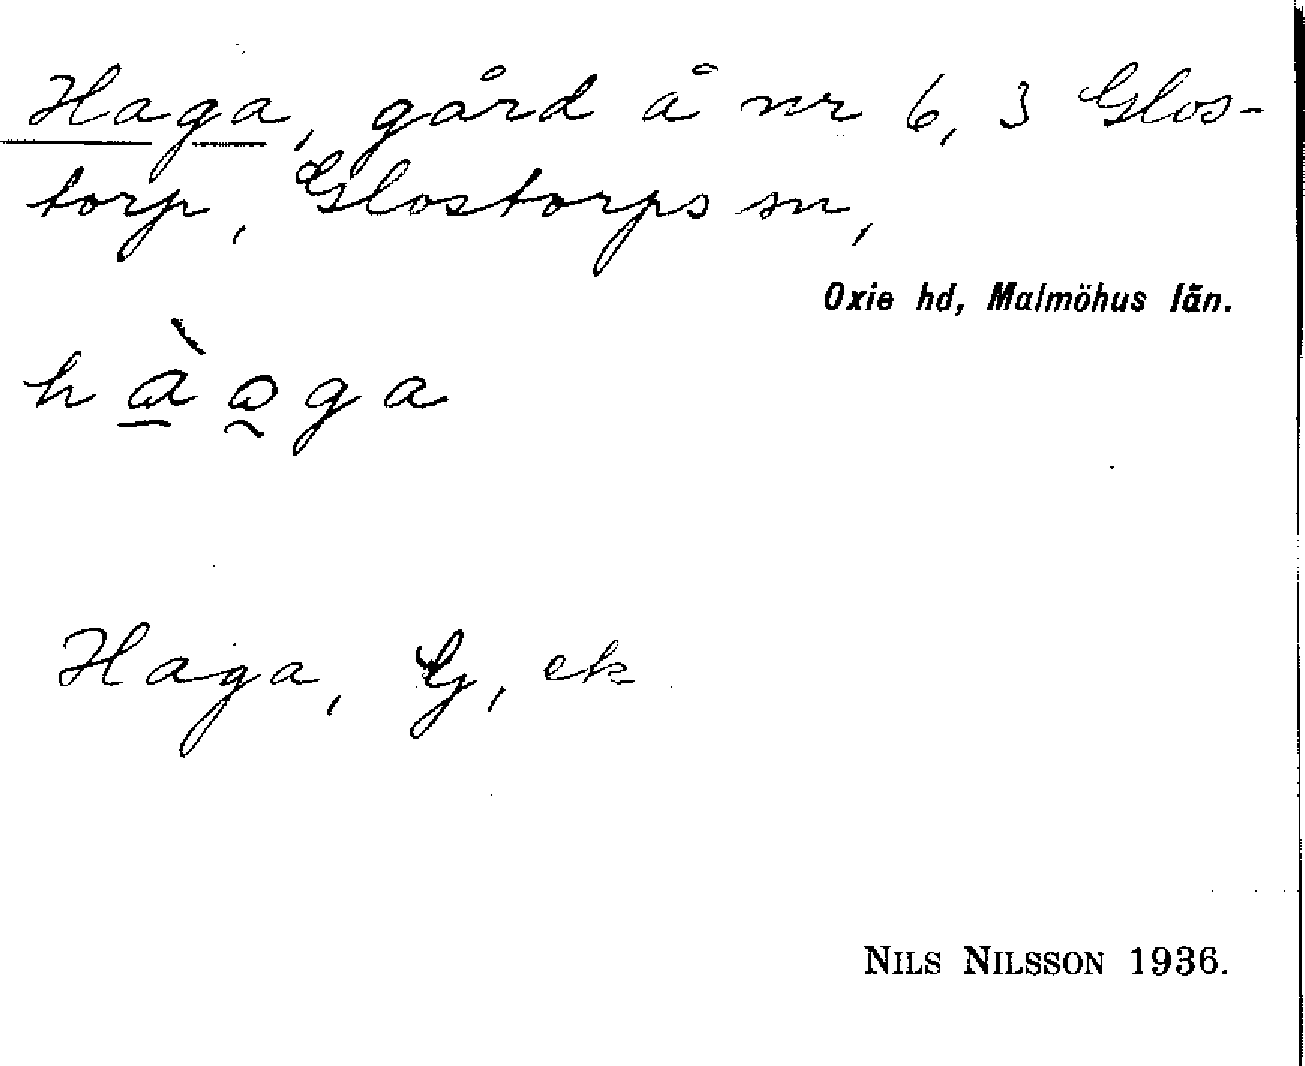 Haga, gård å nr 6, 3 Glos-
torp, Glostorps sn,
Oxie hd, Malmöhus län.
Haga, G, ek
NILS NILSSON 1936.